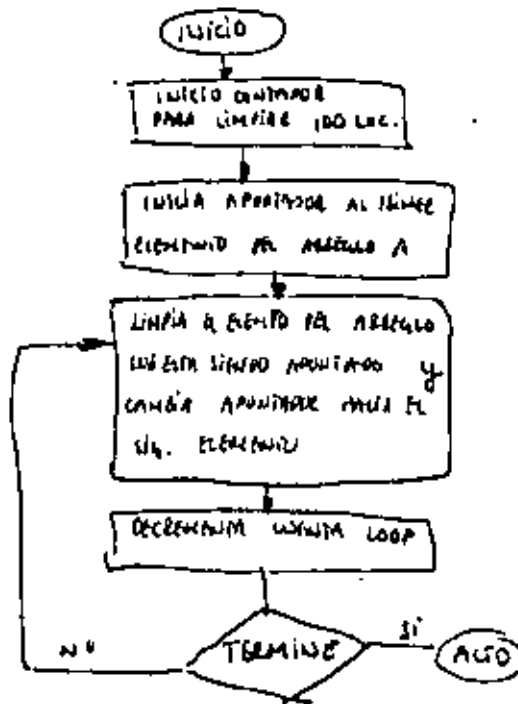 INICIO
INICIO CONTADOR
PARA LIMPIAR 100 LOC.
INICIA APUNTADOR AL PRIMER
ELEMENTO DEL ARREGLO A
LIMPIA EL ELEMENTO DEL ARREGLO
QUE ESTA SIENDO APUNTADO y
CAMBIA APUNTADOR HACIA EL
SIG. ELEMENTO
DECREMENTA CUENTA LOOP
TERMINE
SI
NO
ALTO